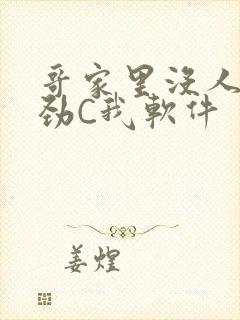 哥家里没人
劲C我软件
姜煌